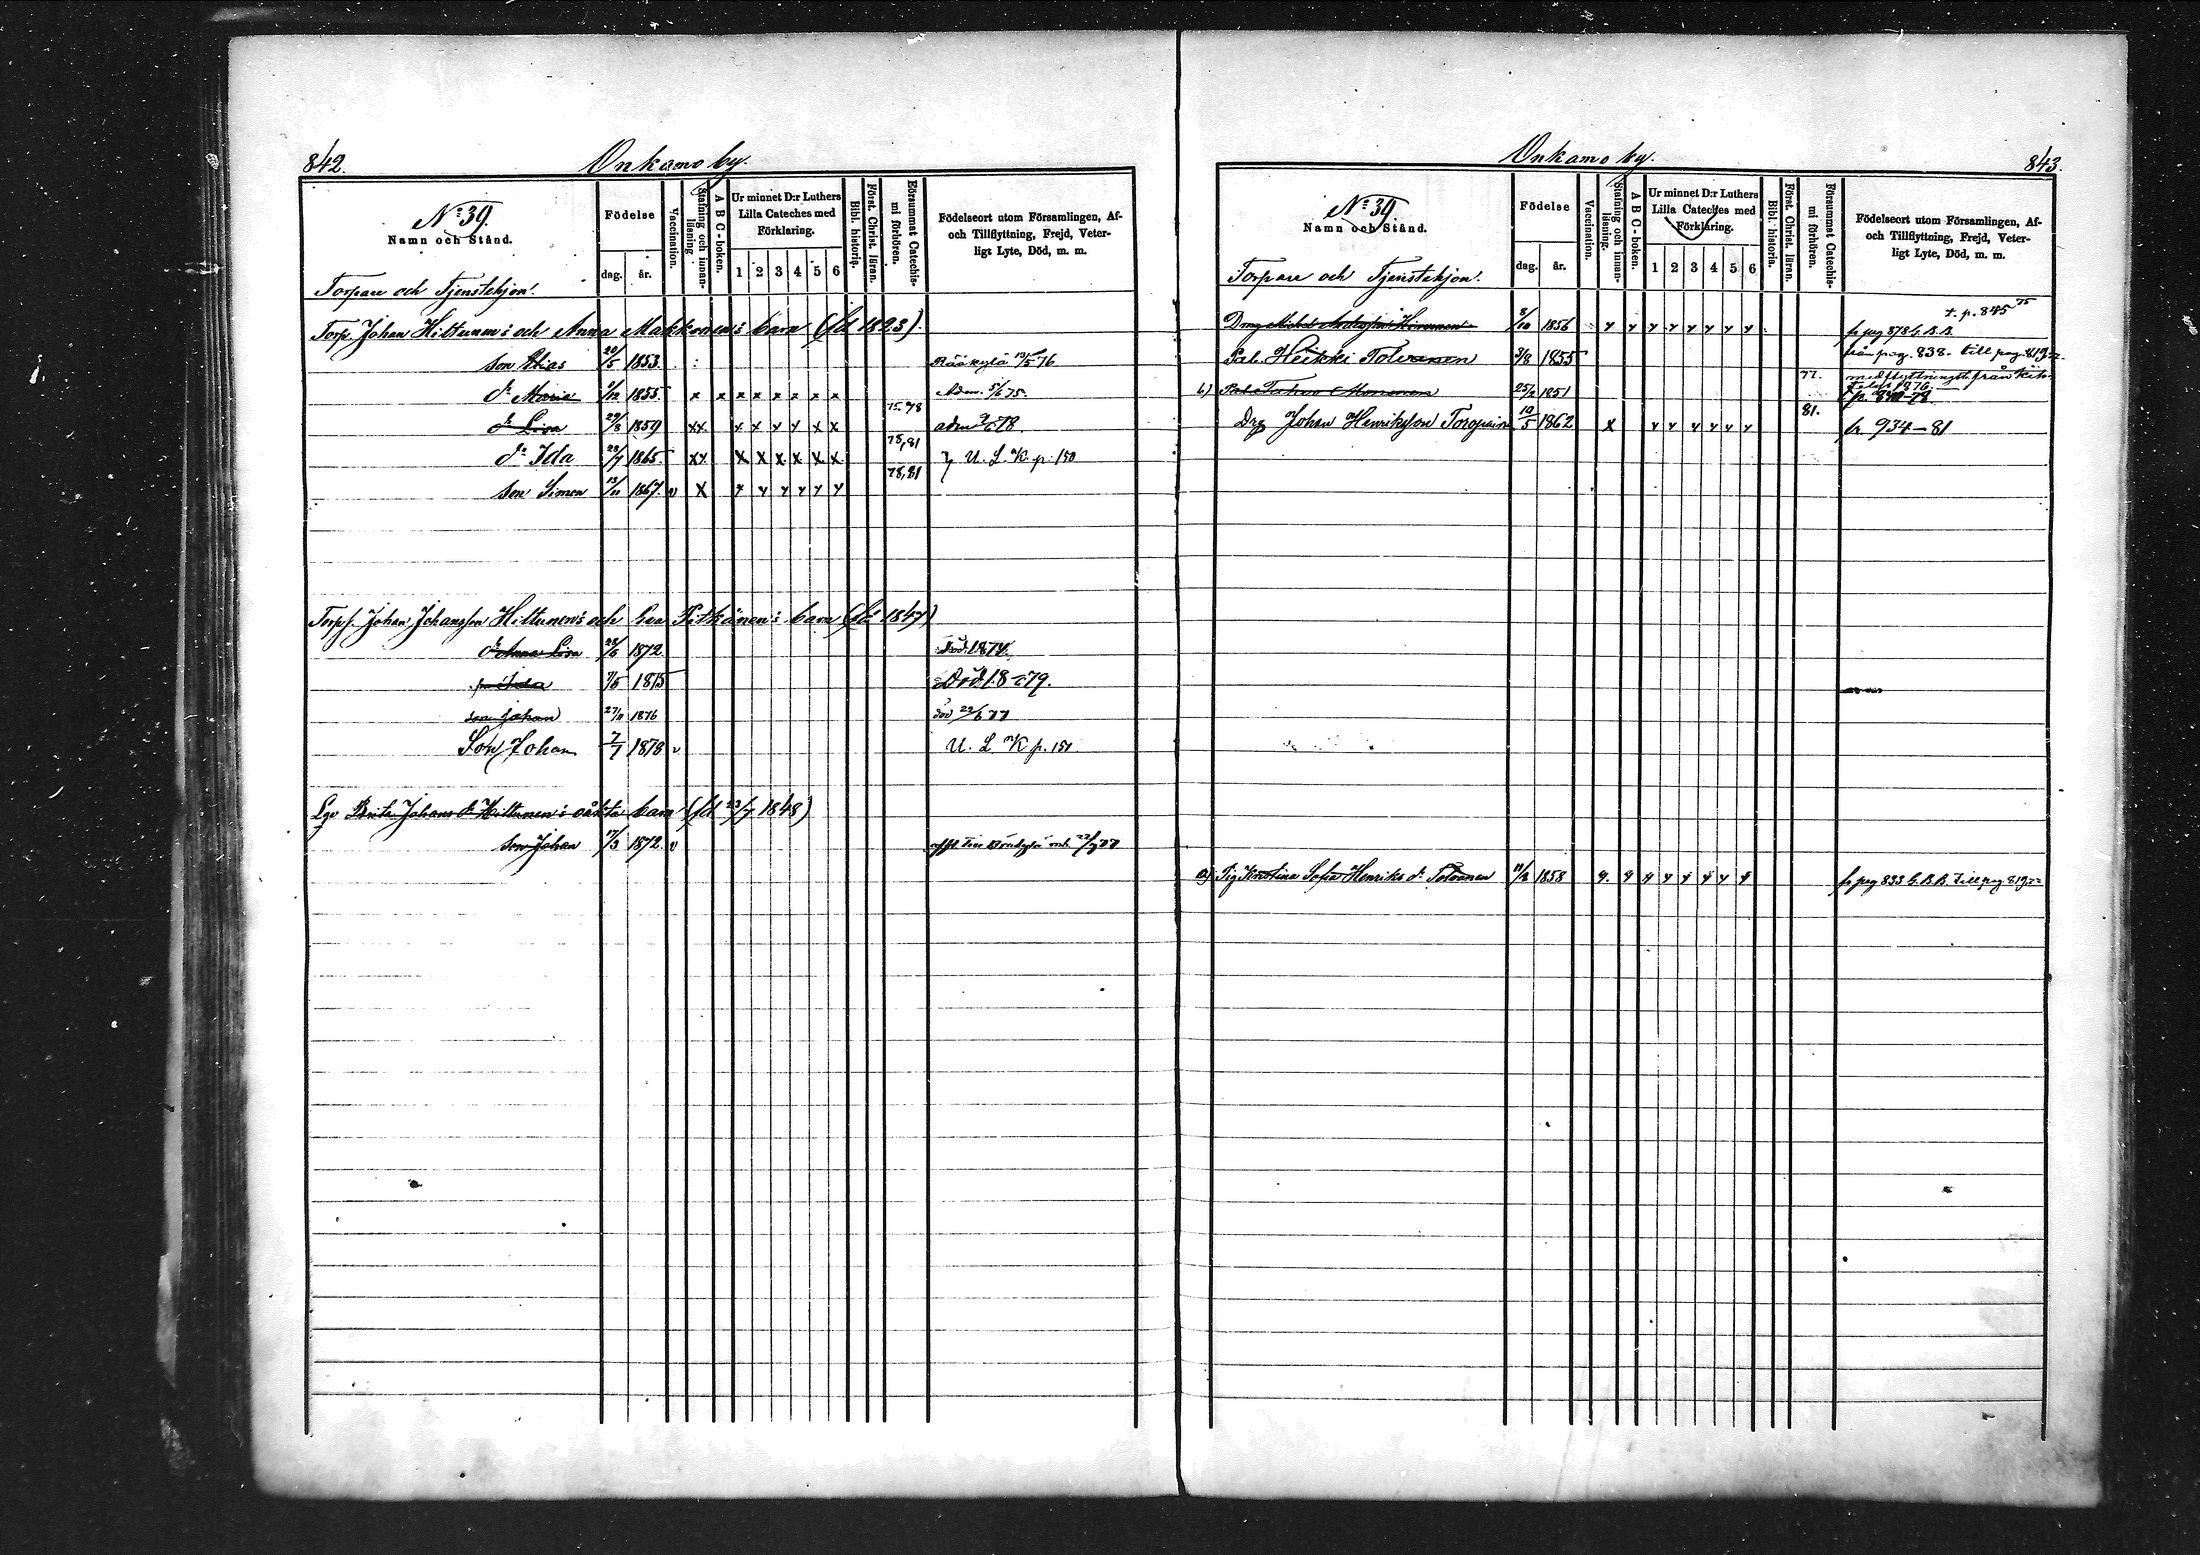 842.
Onkamo by.
Nº 39.
Namn och Stånd.
Födelse
dag.
år.
Vaccination.
Stafning och innan-
läsning
A B C-boken.
Ur minnet D:r Luthers
Lilla Cateches med
Förklaring.
1 2 3 4 5 6
Bibl. historia.
Först. Christ. läran.
Försummat Catechis-
mi förhören.
Födelseort utom Församlingen, Af-
och Tillflyttning, Frejd, Veter-
ligt Lyte, Död, m. m.
Torpare och Tjenstehjon.
Torp. Johan Hiltunen's och Anna Makkonen's barn (fd 1823).
son 20/5 1853. Rääkylä 13/5 76
dr Maria 1/12 1855. x x x x x x x x 5/6 75.
dr Lisa 29/8 1859 xx. x x x y x x 75.78 adm 78.
dr Ida 28/7 1865. xx x x x x x x 78,81 U. L. K p. 150
son Simon 13/11 1867. v x y y y y y y 78,81
Torp s. Johan Johansson Hiltunen's och Eva Pitkänen's barn (fd 1847)
dr Anna Lisa 28/6 1872. Död 1874.
Ida 7/5 1875 Död 79.
son Johan 27/11 1876 död 77
Son Johan 7/7 1878 v U. L K p. 151
Lgo Brita Johans dr Hiltunen's oäkta barn (fd 23/7 1848)
son Johan 17/3 1872. v 77
Onkamo by.
843.
Nº 39.
Namn och Stånd.
Födelse
dag.
år.
Vaccination.
Stafning och innan-
läsning.
A B C-boken.
Ur minnet D:r Luthers
Lilla Cateches med
Förklaring.
1 2 3 4 5 6
Bibl. historia.
Först. Christ. läran.
Försummat Catechis-
mi förhören.
Födelseort utom Församlingen, Af-
och Tillflyttning, Frejd, Veter-
ligt Lyte, Död, m. m.
Torpare och Tjenstehjon.
t. p. 845 75
Drng Michel Andersson Hirvonen 8/10 1856 y y y y y y y y fr pag 878 G. B.
Heikki Tolvanen 3/8 1855 från pag. 838. till pag. 819
b) Mononen 25/2 1851 77. med flyttningsb. från Kite
1876.
Drg Johan Henriksson Toropainen 19/5 1862 x y y y y y y 81. fr 934-81
a) Pig Kristina Sofia Henriks dr Tolvanen 1858 y. y y y y y y y fr pag 833 G. B. Till pag 819